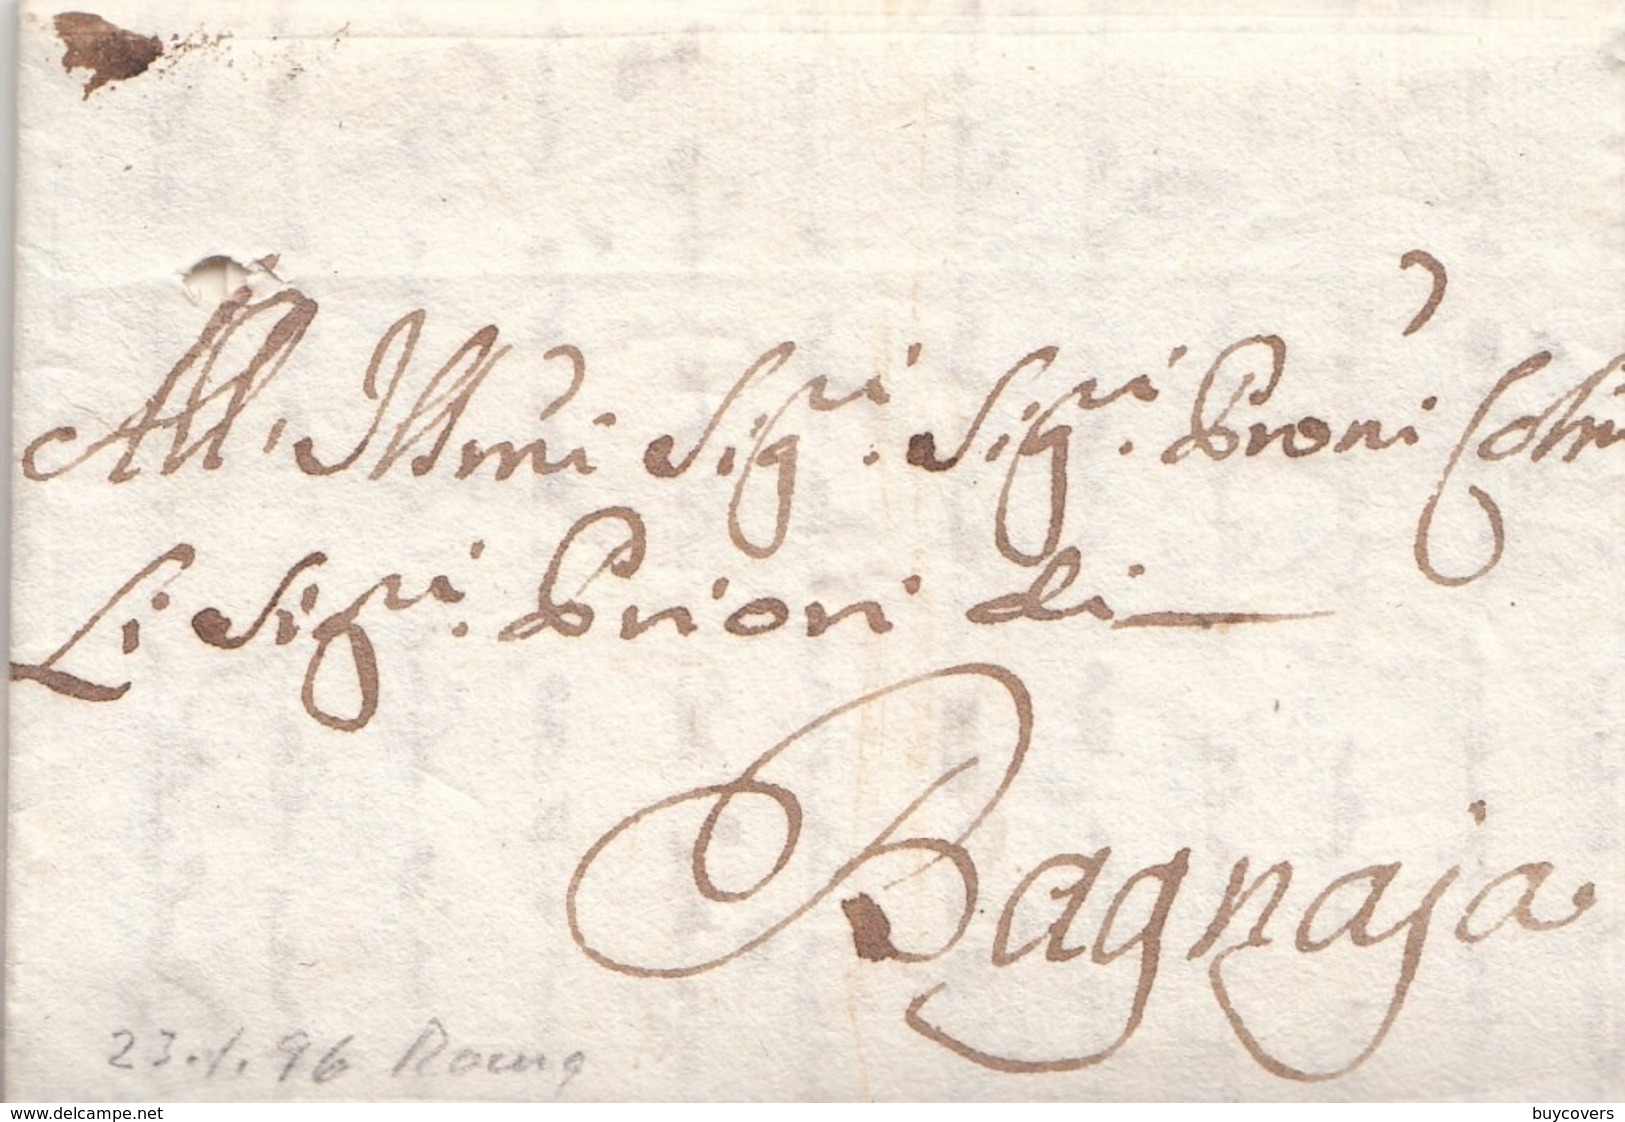 All' Illmi Sigri. Sigri. Proni Colmi
Li Sigri. Priori di
Bagnaja
23.1.96
www.delcampe.net
buycovers